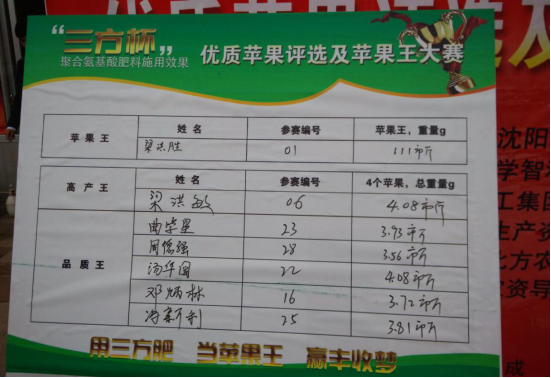 “三方杯”
聚合氨基酸肥料施用效果
优质苹果评选及苹果王大赛
苹果王 姓名 参赛编号 苹果王，重量g
梁洪胜 01 1.11市斤
高产王 姓名 参赛编号 4个苹果，总重量g
梁洪敏 06 4.08市斤
品质王
曲荣星 23 3.93市斤
周儒强 28 3.56市斤
汤华国 22 4.08市斤
邓炳林 16 3.72市斤
冯新利 25 3.81市斤
用三方肥 当苹果王 赢丰收梦
沈阳
学智
工集团
生产资
北方农
资导
成